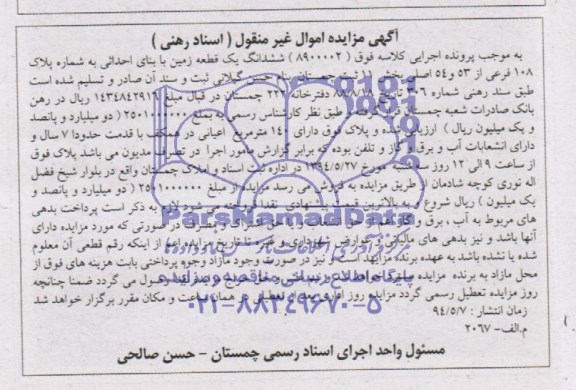 آگهی مزایده اموال غیر منقول ( اسناد رهنی )
به موجب پرونده اجرایی کلاسه فوق ( ۸۹۰۰۰۰۲ ) ششدانگ یک قطعه زمین با بنای احداثی به شماره پلاک
۱۰۸ فرعی از ۵۳ و ۵۴ اصلی بخش ثبت چمستان بنام حسن گیلانی ثبت و سند آن صادر و تسلیم شده است
طبق سند رهنی شماره دفترخانه چمستان در قبال مبلغ ریال در رهن
بانک صادرات شعبه چمستان قرار گرفته و طبق نظر کارشناس رسمی به مبلغ ۲۵۰۱۰۰۰۰۰۰ ( دو میلیارد و پانصد
و یک میلیون ریال ) ارزیابی شده و پلاک فوق دارای ۱۴۰ مترمربع اعیانی در همکف با قدمت حدودا ۷ سال و
دارای انشعابات آب و برق و گاز و تلفن بوده که برابر گزارش مامور اجرا در تصرف مدیون می باشد پلاک فوق
از ساعت ۹ الی ۱۲ روز سه شنبه مورخ ۱۳۹۴/۵/۲۷ در اداره ثبت اسناد و املاک چمستان واقع در بلوار شیخ فضل
اله نوری کوچه شادمان از طریق مزایده به فروش می رسد مزایده از مبلغ ۲۵۰۱۰۰۰۰۰۰ ( دو میلیارد و پانصد و
یک میلیون ) ریال شروع و به بالاترین قیمت پیشنهادی نقدا فروخته می شود لازم به ذکر است پرداخت بدهی
های مربوط به آب ، برق و گاز اعم از حق انشعاب و یا حق اشتراک و مصرف در صورتی که مورد مزایده دارای
آنها باشد و نیز بدهی های مالیاتی و عوارض شهرداری و غیره تا تاریخ مزایده اعم از اینکه رقم قطعی آن معلوم
شده یا نشده باشد به عهده برنده مزایده است و نیز در صورت وجود مازاد وجوه پرداختی بابت هزینه های فوق از
محل مازاد به برنده مزایده مسترد خواهد شد و نیم عشر و حق حراج نقدا وصول می گردد ضمنا چنانچه
روز مزایده تعطیل رسمی گردد مزایده روز اداری بعد از تعطیلی در همان ساعت و مکان مقرر برگزار خواهد شد
زمان انتشار : ۹۴/۵/۷
م.الف- ۲۰۶۷
مسئول واحد اجرای اسناد رسمی چمستان - حسن صالحی
ParsNamadData
پایگاه اطلاع رسانی مناقصه و مزایده
۰۲۱-۸۸۳۴۹۶۷۰-۵